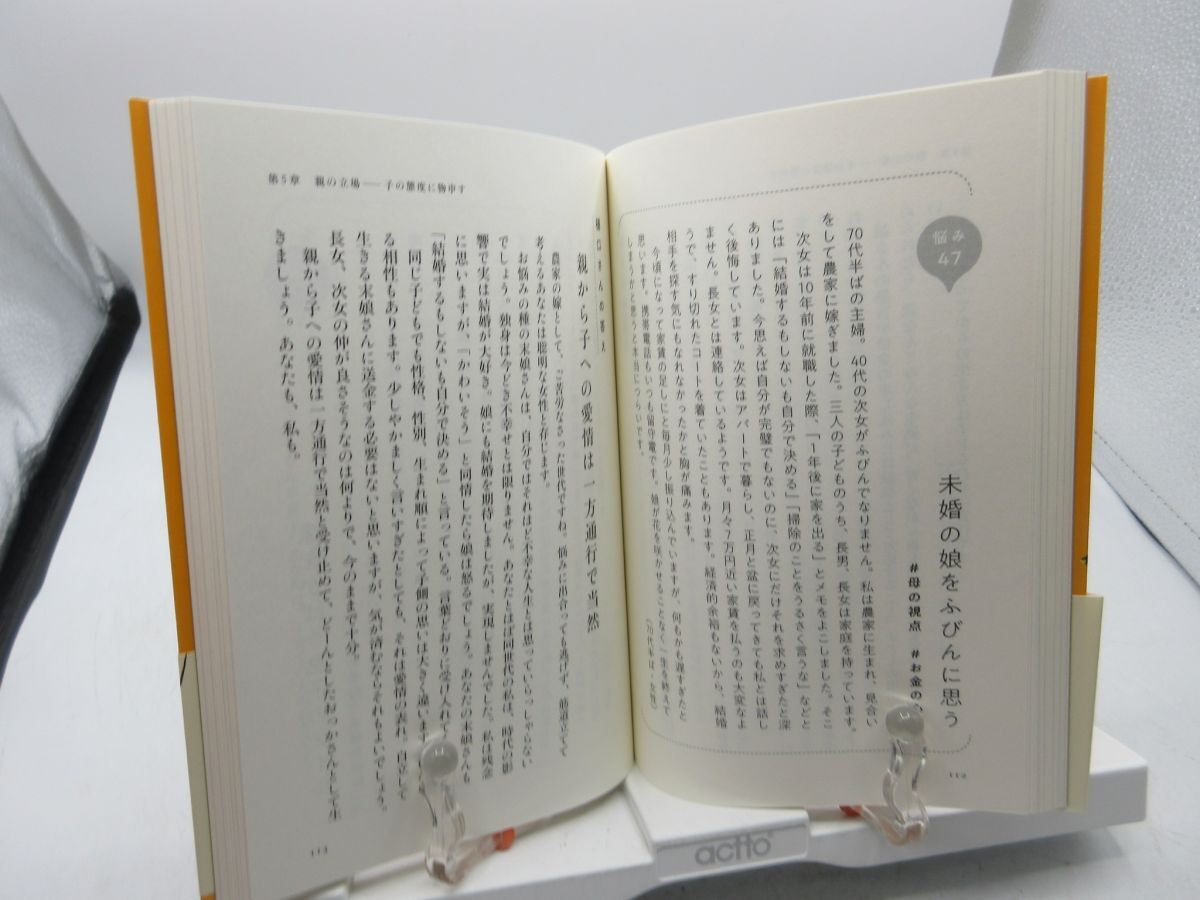 悩み
47
未婚の娘をふびんに思う
#母の視点 #お金の
70代半ばの主婦。40代の次女がふびんでなりません。私は農家に生まれ、見合い
をして農家に嫁ぎました。三人の子どものうち、長男、長女は家庭を持っています。
次女は10年前に就職した際、「1年後に家を出る」とメモをよこしました。そこ
には「結婚するもしないも自分で決める」「掃除のことをうるさく言うな」などと
ありました。今思えば自分が完璧でもないのに、次女にだけそれを求めすぎたと深
く後悔しています。次女はアパートで暮らし、正月と盆に戻ってきても私とは話し
ません。長女とは連絡しているようです。月々7万円近い家賃を払うのも大変なよ
うで、すり切れたコートを着ていたこともあります。経済的余裕もないから、結婚
相手を探す気にもなれなかったかと胸が痛みます。
今頃になって家賃の足しにと毎月少し振り込んでいますが、何もかも遅すぎたと
思います。携帯電話もいつも留守電です。娘が花を咲かせることなく一生を終えて
しまうかと思うと本当につらいです。
(70代半ば・女性)
112
第5章 親の立場――子の態度に物申す
樋口さんの答え
親から子への愛情は一方通行で当然
農家の嫁として、ご苦労なさった世代ですね。悩みに出合っても逃げず、筋道立てて
考えるあなたは聡明な女性と存じます。
お悩みの種の末娘さんは、自分ではそれほど不幸な人生とは思っていらっしゃらない
でしょう。独身は今どき不幸せとは限りません。あなたとほぼ同世代の私は、時代の影
響で実は結婚が大好き。娘にも結婚を期待しましたが、実現しませんでした。私は残念
に思いますが、「かわいそう」と同情したら娘は怒るでしょう。あなたの末娘さんも
「結婚するもしないも自分で決める」と言っている。言葉どおりに受け入れて
同じ子どもでも性格、性別、生まれ順によって子側の思いは大きく違います
る相性もあります。少しやかましく言いすぎたとしても、それは愛情の表れ、自立して
生きる末娘さんに送金する必要はないと思いますが、気が済むならそれもよいでしょう。
長女、次女の仲が良さそうなのは何よりで、今のままで十分。
親から子への愛情は一方通行で当然と受け止めて、どーんとしたおっかさんとして生
きましょう。あなたも、私も。
113
actto